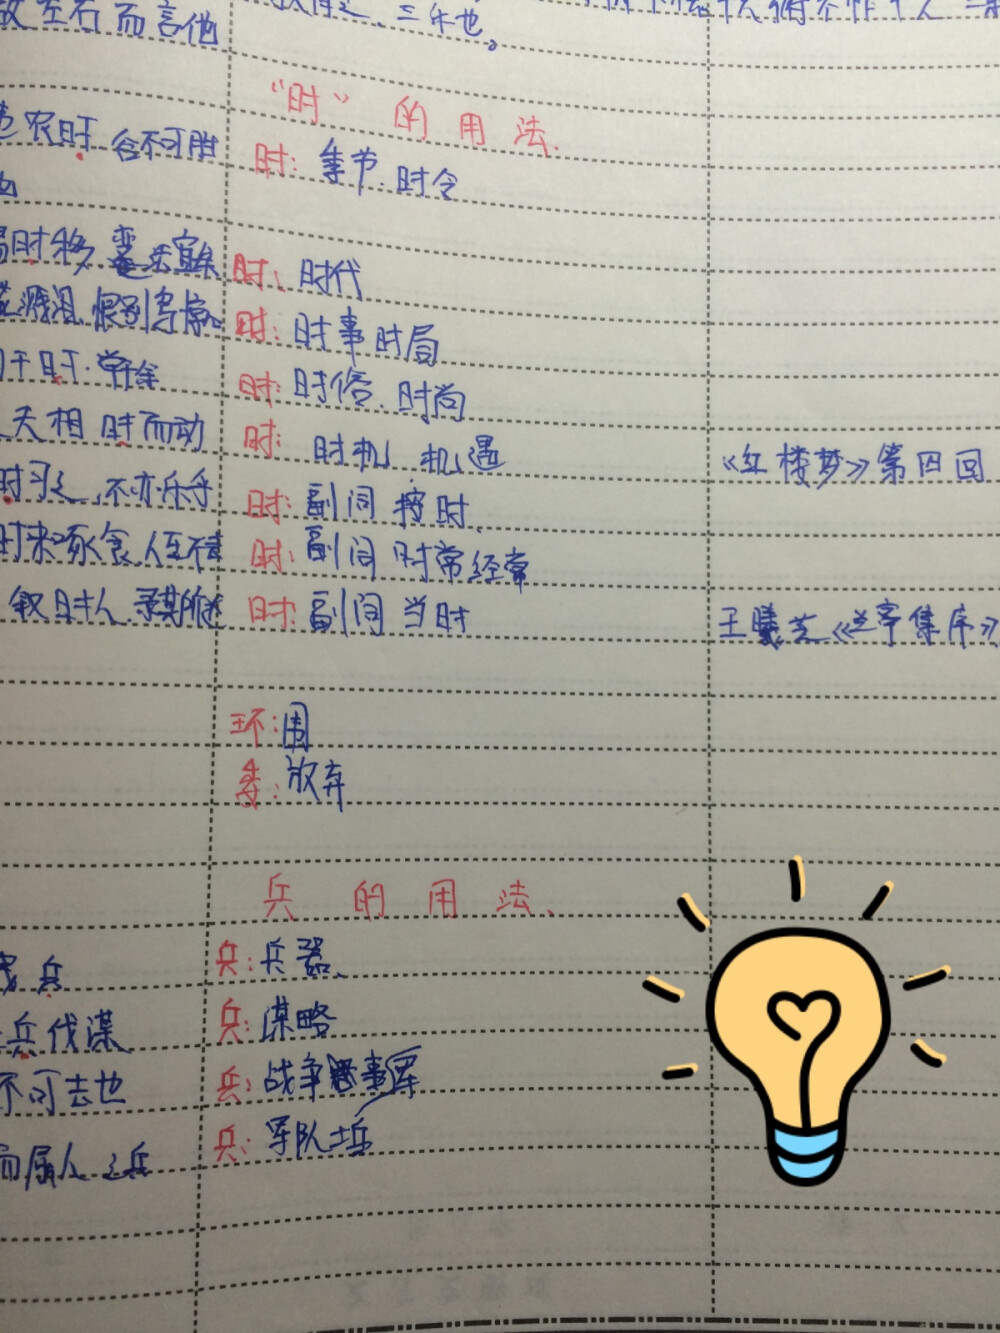 故左右而言他
三年也。
"时"的用法.
违农时 谷不可胜 时: 季节.时令
也
易时移, 变法宜矣 时: 时代
花溅泪 恨别鸟惊心 时: 时事时局
于时. 时: 时俗.时尚
天相 时而动 时: 时机 机遇 《红楼梦》第四回
时习之, 不亦乐乎 时: 副词 按时.
时来啄食, 人至不去 时: 副词 时常经常
叙时人. 录其所述 时: 副词 当时 王羲之《兰亭集序》
环: 围
委: 放弃
兵的用法.
兵 兵: 兵器.
兵伐谋 兵: 谋略
不可去也 兵: 战争 事军
而属人之兵 兵: 军队士兵